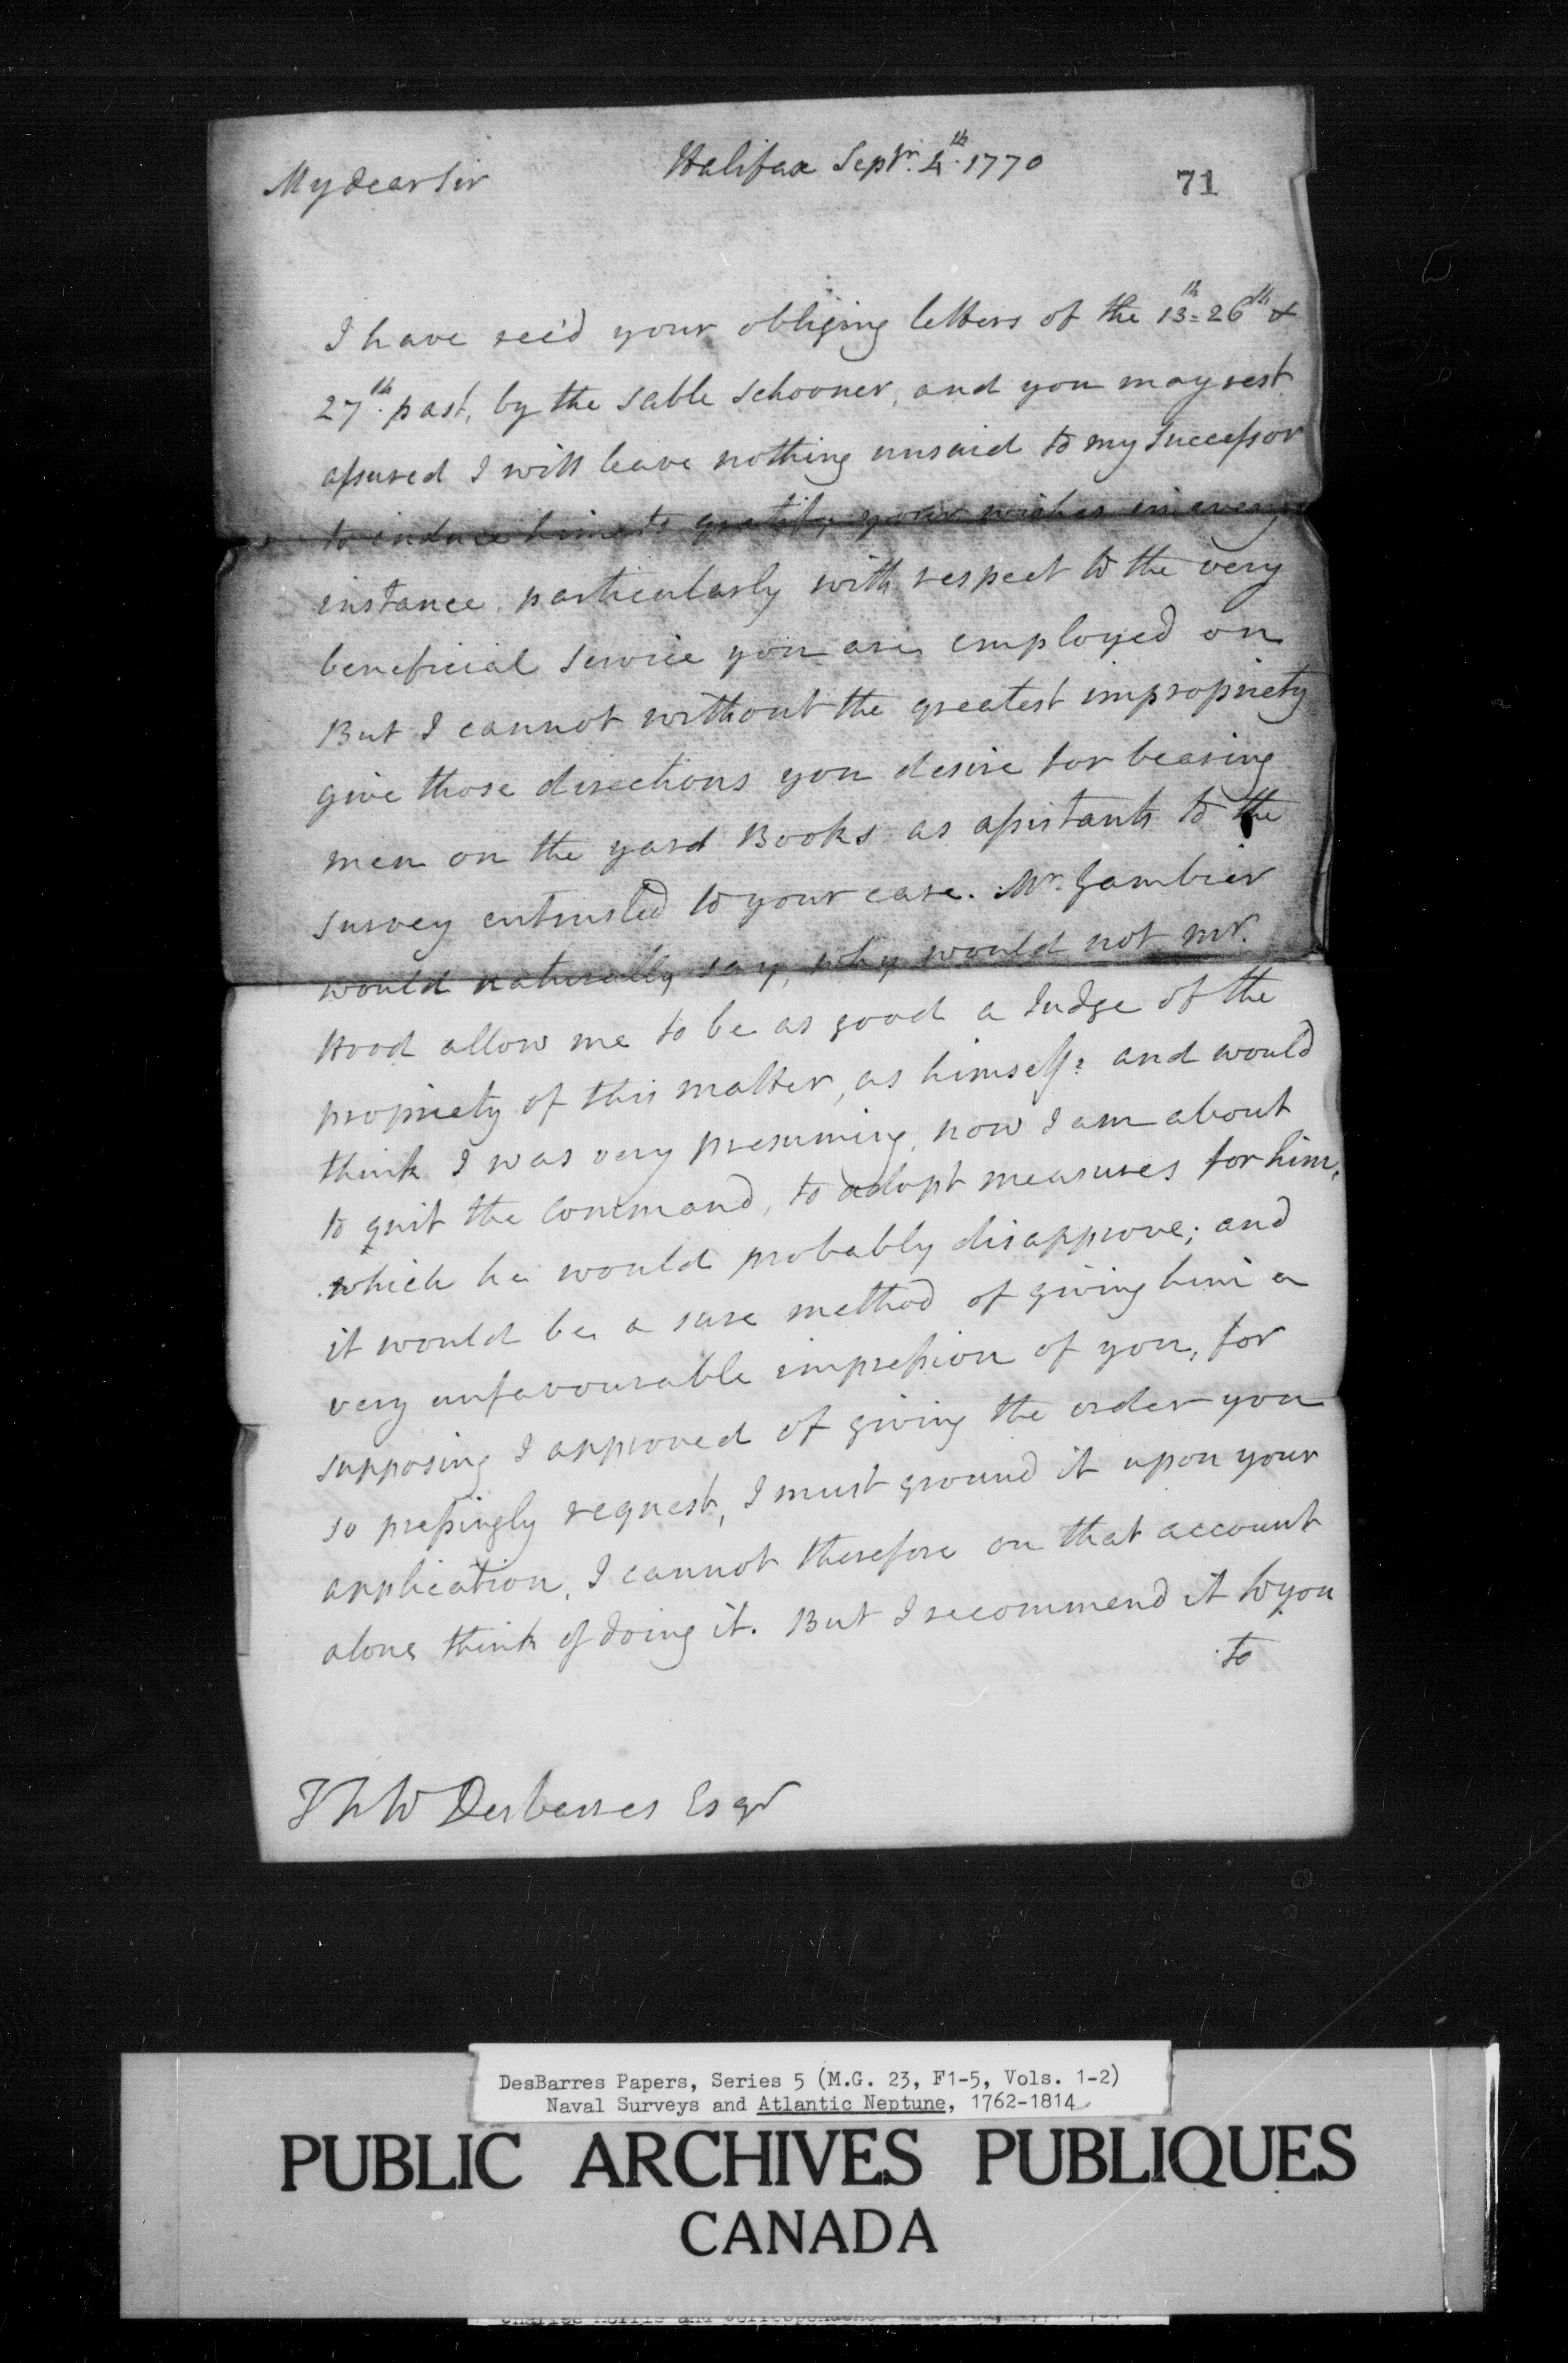 Halifax Sepr. 4th. 1770
My dear Sir
71
I have rec'd your obliging letters of the 13th= 26th &
27th. past, by the Sable Schooner, and you may rest
assured I will leave nothing unsaid to my Successor
to induce him to gratify your wishes in every
instance, particularly with respect to the very
beneficial Service you are employed on
But I cannot without the greatest impropriety
give those directions you desire for bearing
men on the yard Books as assistants to the
survey entrusted to your care. Mr. Gambier
would naturally say, why would not mr.
Hood allow me to be as good a Judge of the
propriety of this matter, as himself? and would
think I was very presuming, now I am about
to quit the Command, to adopt measures for him,
which he would probably disapprove; and
it would be a sure method of giving him a
very unfavourable impression of you, for
supposing I approved of giving the order you
so pressingly request, I must ground it upon your
application, I cannot therefore on that account
alone think of doing it. But I recommend it to you
to
J F W Desbarres Esqr
DesBarres Papers, Series 5 (M.G. 23, F1-5, Vols. 1-2)
Naval Surveys and Atlantic Neptune, 1762-1814
PUBLIC ARCHIVES PUBLIQUES
CANADA